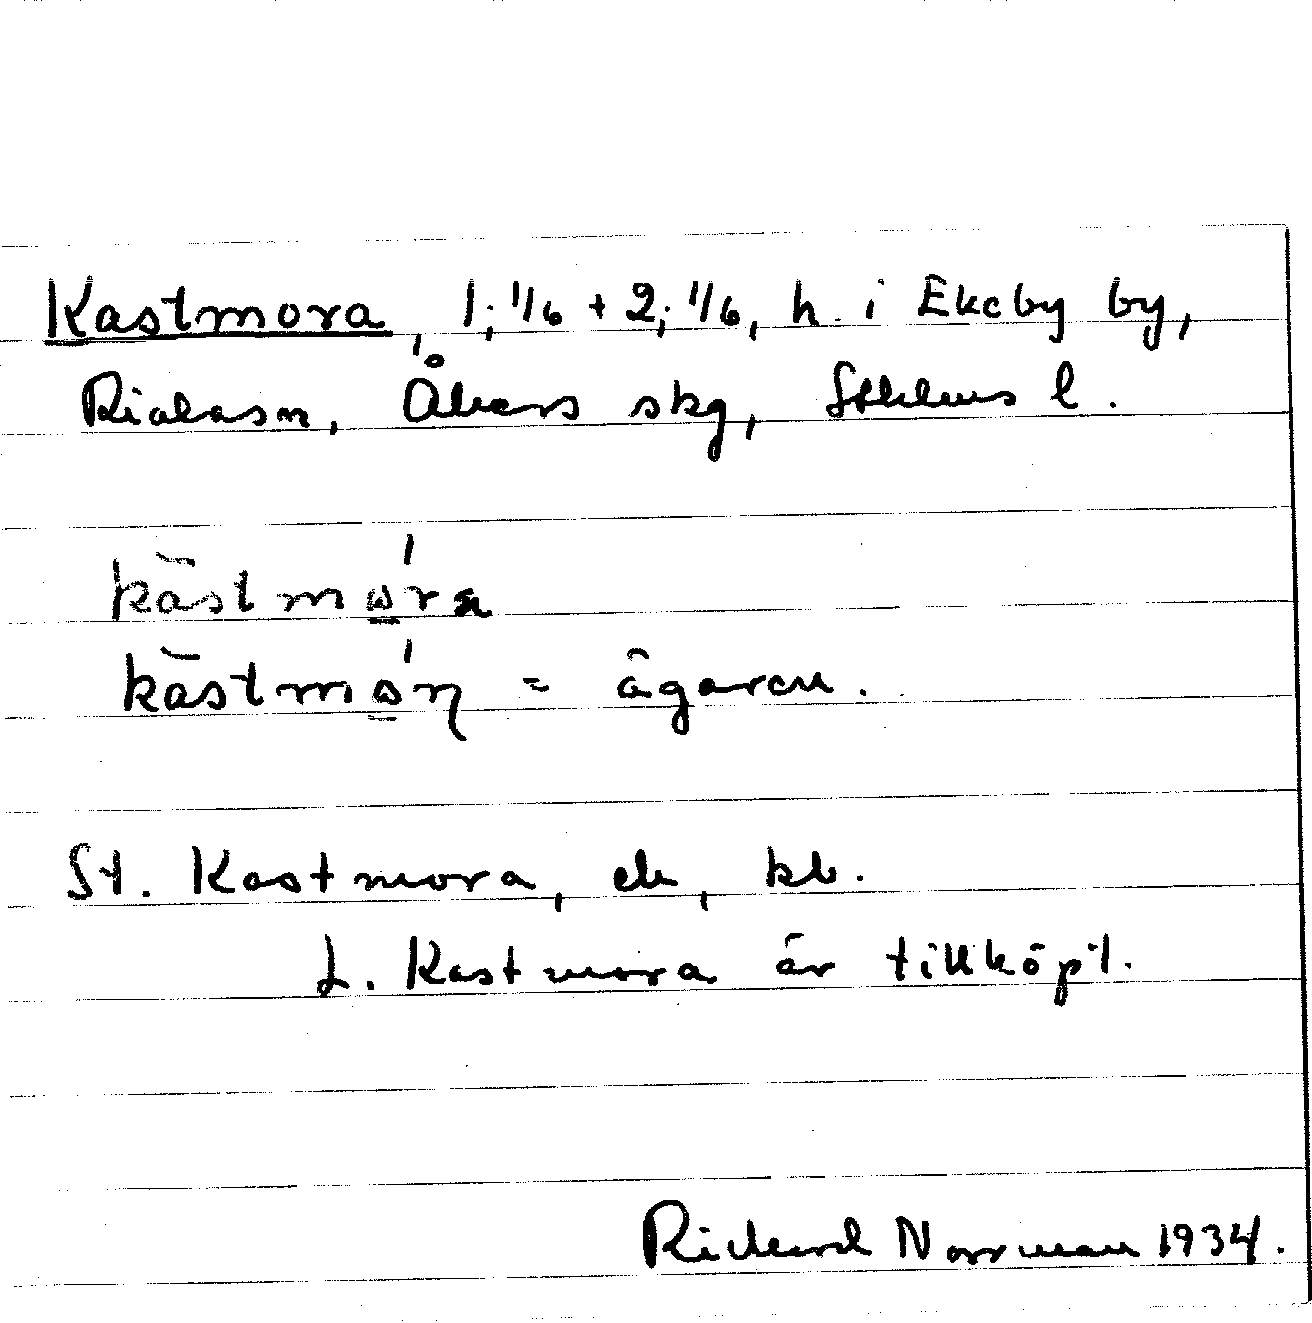 Kastmora, 1; 1/6 + 2; 1/6, h. i Ekeby by,
Riala sn, Åkers skg, Sthlms l.
kāstmώ̲ra
kāstmώ̲ɳ = ägaren.
St. Kastmora, ek, kb.
L. Kastmora är tillköpt.
Rickard Norrman 1934.